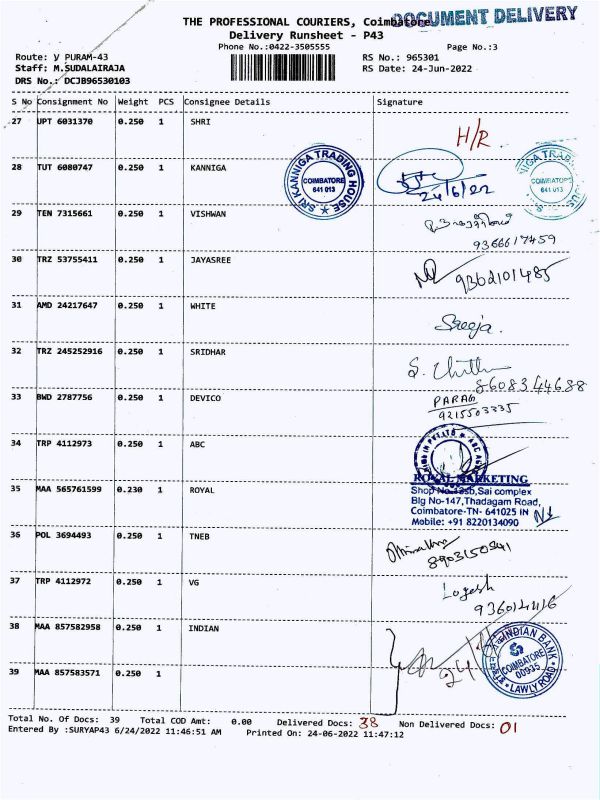 THE PROFESSIONAL COURIERS, Coimbatore
DOCUMENT DELIVERY
Delivery Runsheet - P43
Phone No.:0422-3505555
Page No.:3
Route: y PURAM-43
RS No.: 965301
Staff: M.SUDALAIRAJA
RS Date: 24-Jun-2022
DRS No.: DCJB96530103
S No Consignment No Weight PCS Consignee Details Signature
27 UPT 6031370 0.250 1 SHRI
H/R
28 TUT 6080747 0.250 1 KANNIGA
SRI KANNIGA TRADING HOUSE
COIMBATORE
641 013
24/6/22
COIMBATORE
641 013
29 TEN 7315661 0.250 1 VISHWAN
9366617459
30 TRZ 53755411 0.250 1 JAYASREE
9362101485
31 AMD 24217647 0.250 1 WHITE
Sreeja.
32 TRZ 245252916 0.250 1 SRIDHAR
8608344688
33 BWD 2787756 0.250 1 DEVICO
PARAG
9215503335
34 TRP 4112973 0.250 1 ABC
35 MAA 565761599 0.230 1 ROYAL
ROYAL MARKETING
Sai complex
Blg No-147,Thadagam Road,
Coimbatore-TN- 641025 IN
Mobile: +91 8220134090
36 POL 3694493 0.250 1 TNEB
8903150341
37 TRP 4112972 0.250 1 VG
Logesh
936014416
38 MAA 857582958 0.250 1 INDIAN
INDIAN BANK
COIMBATORE
00935
LAWLY ROAD
39 MAA 857583571 0.250 1
Total No. Of Docs: 39 Total COD Amt: 0.00 Delivered Docs: 38 Non Delivered Docs: 01
Entered By :SURYAP43 6/24/2022 11:46:51 AM Printed On: 24-06-2022 11:47:12